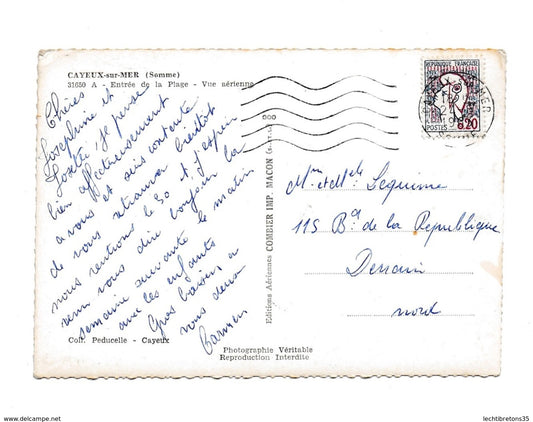 CAYEUX-sur-MER (Somme)
31650 A - Entrée de la Plage - Vue aérienne
Chères
Josephine et
Josette je pense
bien affectueusement
a vous et suis contente
de vous retrouver bientôt
nous rentrons le 30 et j'espère
venir vous dire bonjour la
semaine suivante le matin
avec les enfants
Gros baisers a
vous deux
Carmen
Coll. Peducelle - Cayeux
Photographie Véritable
Reproduction Interdite
Editions Aériennes COMBIER IMP. MACON
REPUBLIQUE FRANCAISE
POSTES 0,20
Mme et Mlle Lequimme
115 Bd de la République
Denain
nord
www.delcampe.net
lechtibretons35